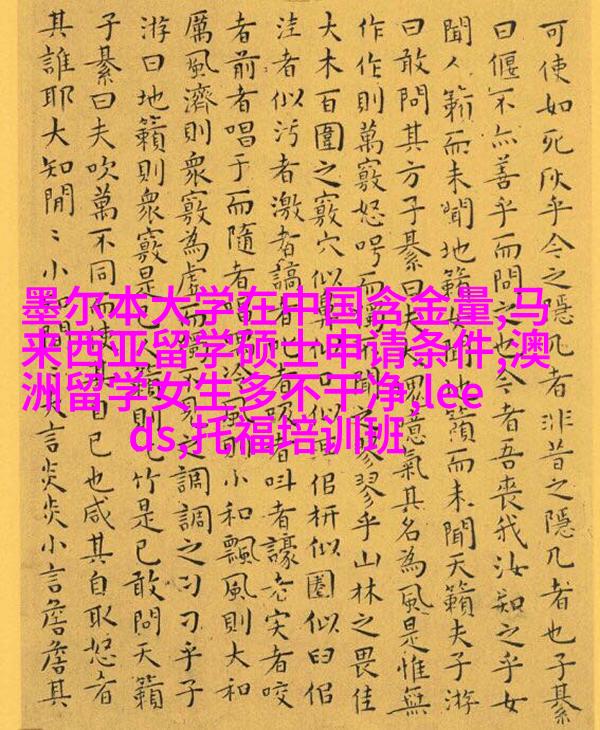 墨尔本大学在中国含金量,马
来西亚留学硕士申请条件,澳
洲留学女生多不干净,lee
ds,托福培训班
可使如死灰乎今之隱几者非昔之隱几者也子綦
曰偃不亦善乎而問之也今者吾喪我汝知之乎女
聞人籟而未聞地籟女聞地籟而未聞天籟夫子游
曰敢問其方子綦曰夫大噫氣其名為風是惟無
作作則萬竅怒呺而獨聞之翏翏乎山林之畏佳
大木百圍之竅穴似鼻似口似枅似圈似臼似
洼者似污者激者謞者吸者叫者譹者宎者咬
者前者唱于而隨者唱喁泠風則小和飄風則大和
厲風濟則眾竅為虛而獨不見之調調之刁刁乎子
游曰地籟則眾竅是已人籟則比竹是已敢問天籟
子綦曰夫吹萬不同而使其自已也咸其自取怒者
其誰耶大知閒〻小知間〻大言炎炎小言詹詹其